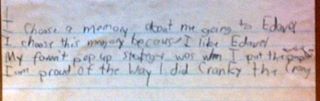 I choose a memory about me going to Edavill
I choose this memory because I like Edavill
My favorit pop up strategy was when I put the people
I am proud of the way I did Cranky the Crane